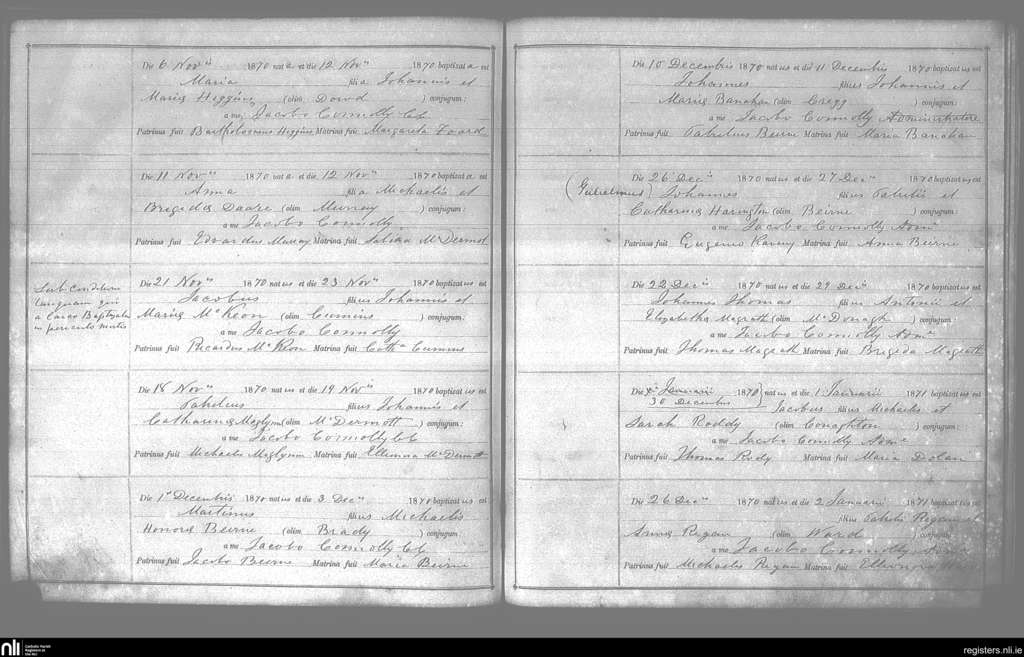 Die 6 Novris 1870 nata et die 12 Novr 1870 baptizata est
Maria filia Johannis et
Mariæ Higgins (olim Dowd ) conjugum:
a me, Jacobo Connolly CC
Patrinus fuit Bartholomeus Higgins Matrina fuit Margarita
Die 11 Novr 1870 nata et die 12 Novr 1870 baptizata est
Anna filia Michaelis et
Brigidæ (olim Murray ) conjugum:
a me Jacobo Connolly
Patrinus fuit Edvardus Murray Matrina fuit McDermot
Sub conditione
tanquam
a laico Baptizatus
in periculo mortis
Die 21 Novris 1870 natus et die 23 Novris 1870 baptizatus est
Jacobus filius Johannis et
Mariæ McKeon (olim Cumins ) conjugum:
a me Jacobo Connolly
Patrinus fuit McKeon Matrina fuit Cathа Cummins
Die 18 Novris 1870 natus et die 19 Novris 1870 baptizatus est
filius Johannis et
Catharinæ McGlynn (olim McDermott ) conjugum:
a me Jacobo Connolly CC
Patrinus fuit Michaelis McGlynn Matrina fuit Ellenna McDermott
Die 1o Decembris 1870 natus et die 3 Decris 1870 baptizatus est
Martinus filius Michaelis
Honoræ Beirne (olim Brady ) conjugum:
a me Jacobo Connolly CC
Patrinus fuit Jacobo Beirne Matrina fuit Maria Beirne
Die 10 Decembris 1870 natus et die 11 Decembris 1870 baptizatus est
Johannes filius Johannis et
Mariæ Banahan (olim Cregg ) conjugum:
a me Jacobo Connolly Administratore
Patrinus fuit Beirne Matrina fuit Maria Banahan
Die 26 Decris 1870 natus et die 27 Decris 1870 baptizatus est
(Gulielmus) Johannes filius et
Catharinæ Harington (olim Beirne ) conjugum:
a me Jacobo Connolly Admr
Patrinus fuit Eugenio Matrina fuit Anna Beirne
Die 22 Decris 1870 natus et die 29 Decris 1870 baptizatus est
Johannes Thomas filius Antonii et
Elizabetha Magrath (olim McDonagh ) conjugum:
a me Jacobo Connolly Admr
Patrinus fuit Thomas Magrath Matrina fuit Brigida Magrath
Die Januarii 1870 natus et die 1 Januarii 1871 baptizatus est
30 Decembris Jacobus filius Michaelis et
Sarah Roddy (olim Conaghton ) conjugum:
a me Jacobo Connolly Admr
Patrinus fuit Thomas Rody Matrina fuit Maria Dolan
Die 26 Decris 1870 natus et die 2 Januarii 1871 baptizatus est
filius Regan et
Annæ Regan (olim Ward ) conjugum:
a me Jacobo Connolly
Patrinus fuit Michaelis Regan Matrina fuit
nli Catholic Parish Registers at the NLI
registers.nli.ie